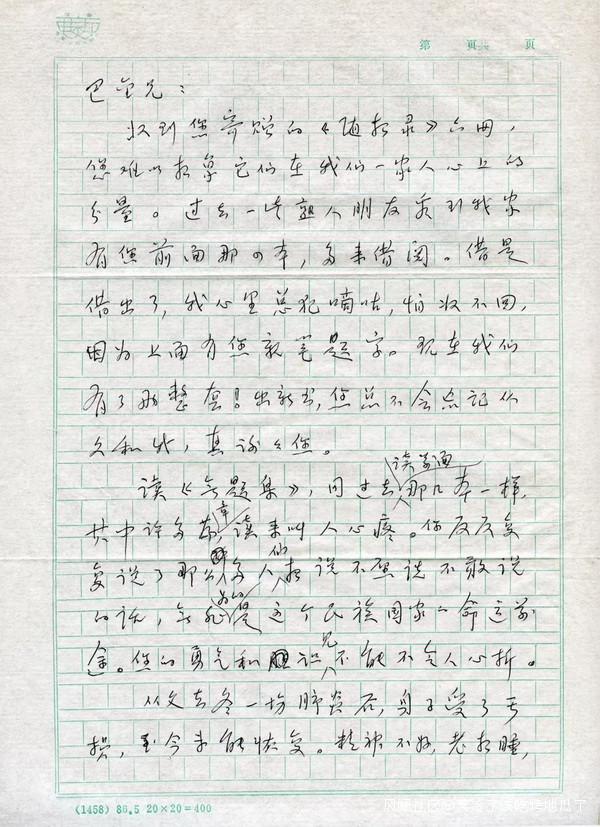 第 页共 页
巴金兄：
收到您寄赠的《随想录》六册，
您难以想象它们在我们一家人心上的
分量。过去一些熟人朋友见到我家
有您前面那四本，多来借阅。借是
借出了，我心里总犯嘀咕，怕收不回，
因为上面有您亲笔题字。现在我们
有了两整套！出新书，您总不会忘记从
文和我，真谢谢您。
读《无题集》，同过去读单通那几本一样，
其中许多章，读来叫人心疼。您反反复
复说了那么多人们想说不愿说不敢说
的话，无非为的是这个民族国家的命运前
途。您的勇气和胆识兄不能不令人心折。
从文去冬一场肺炎后，身子受了亏
损，至今未能恢复。精神不好，老想睡，
(1458) 86.5 20×20=400